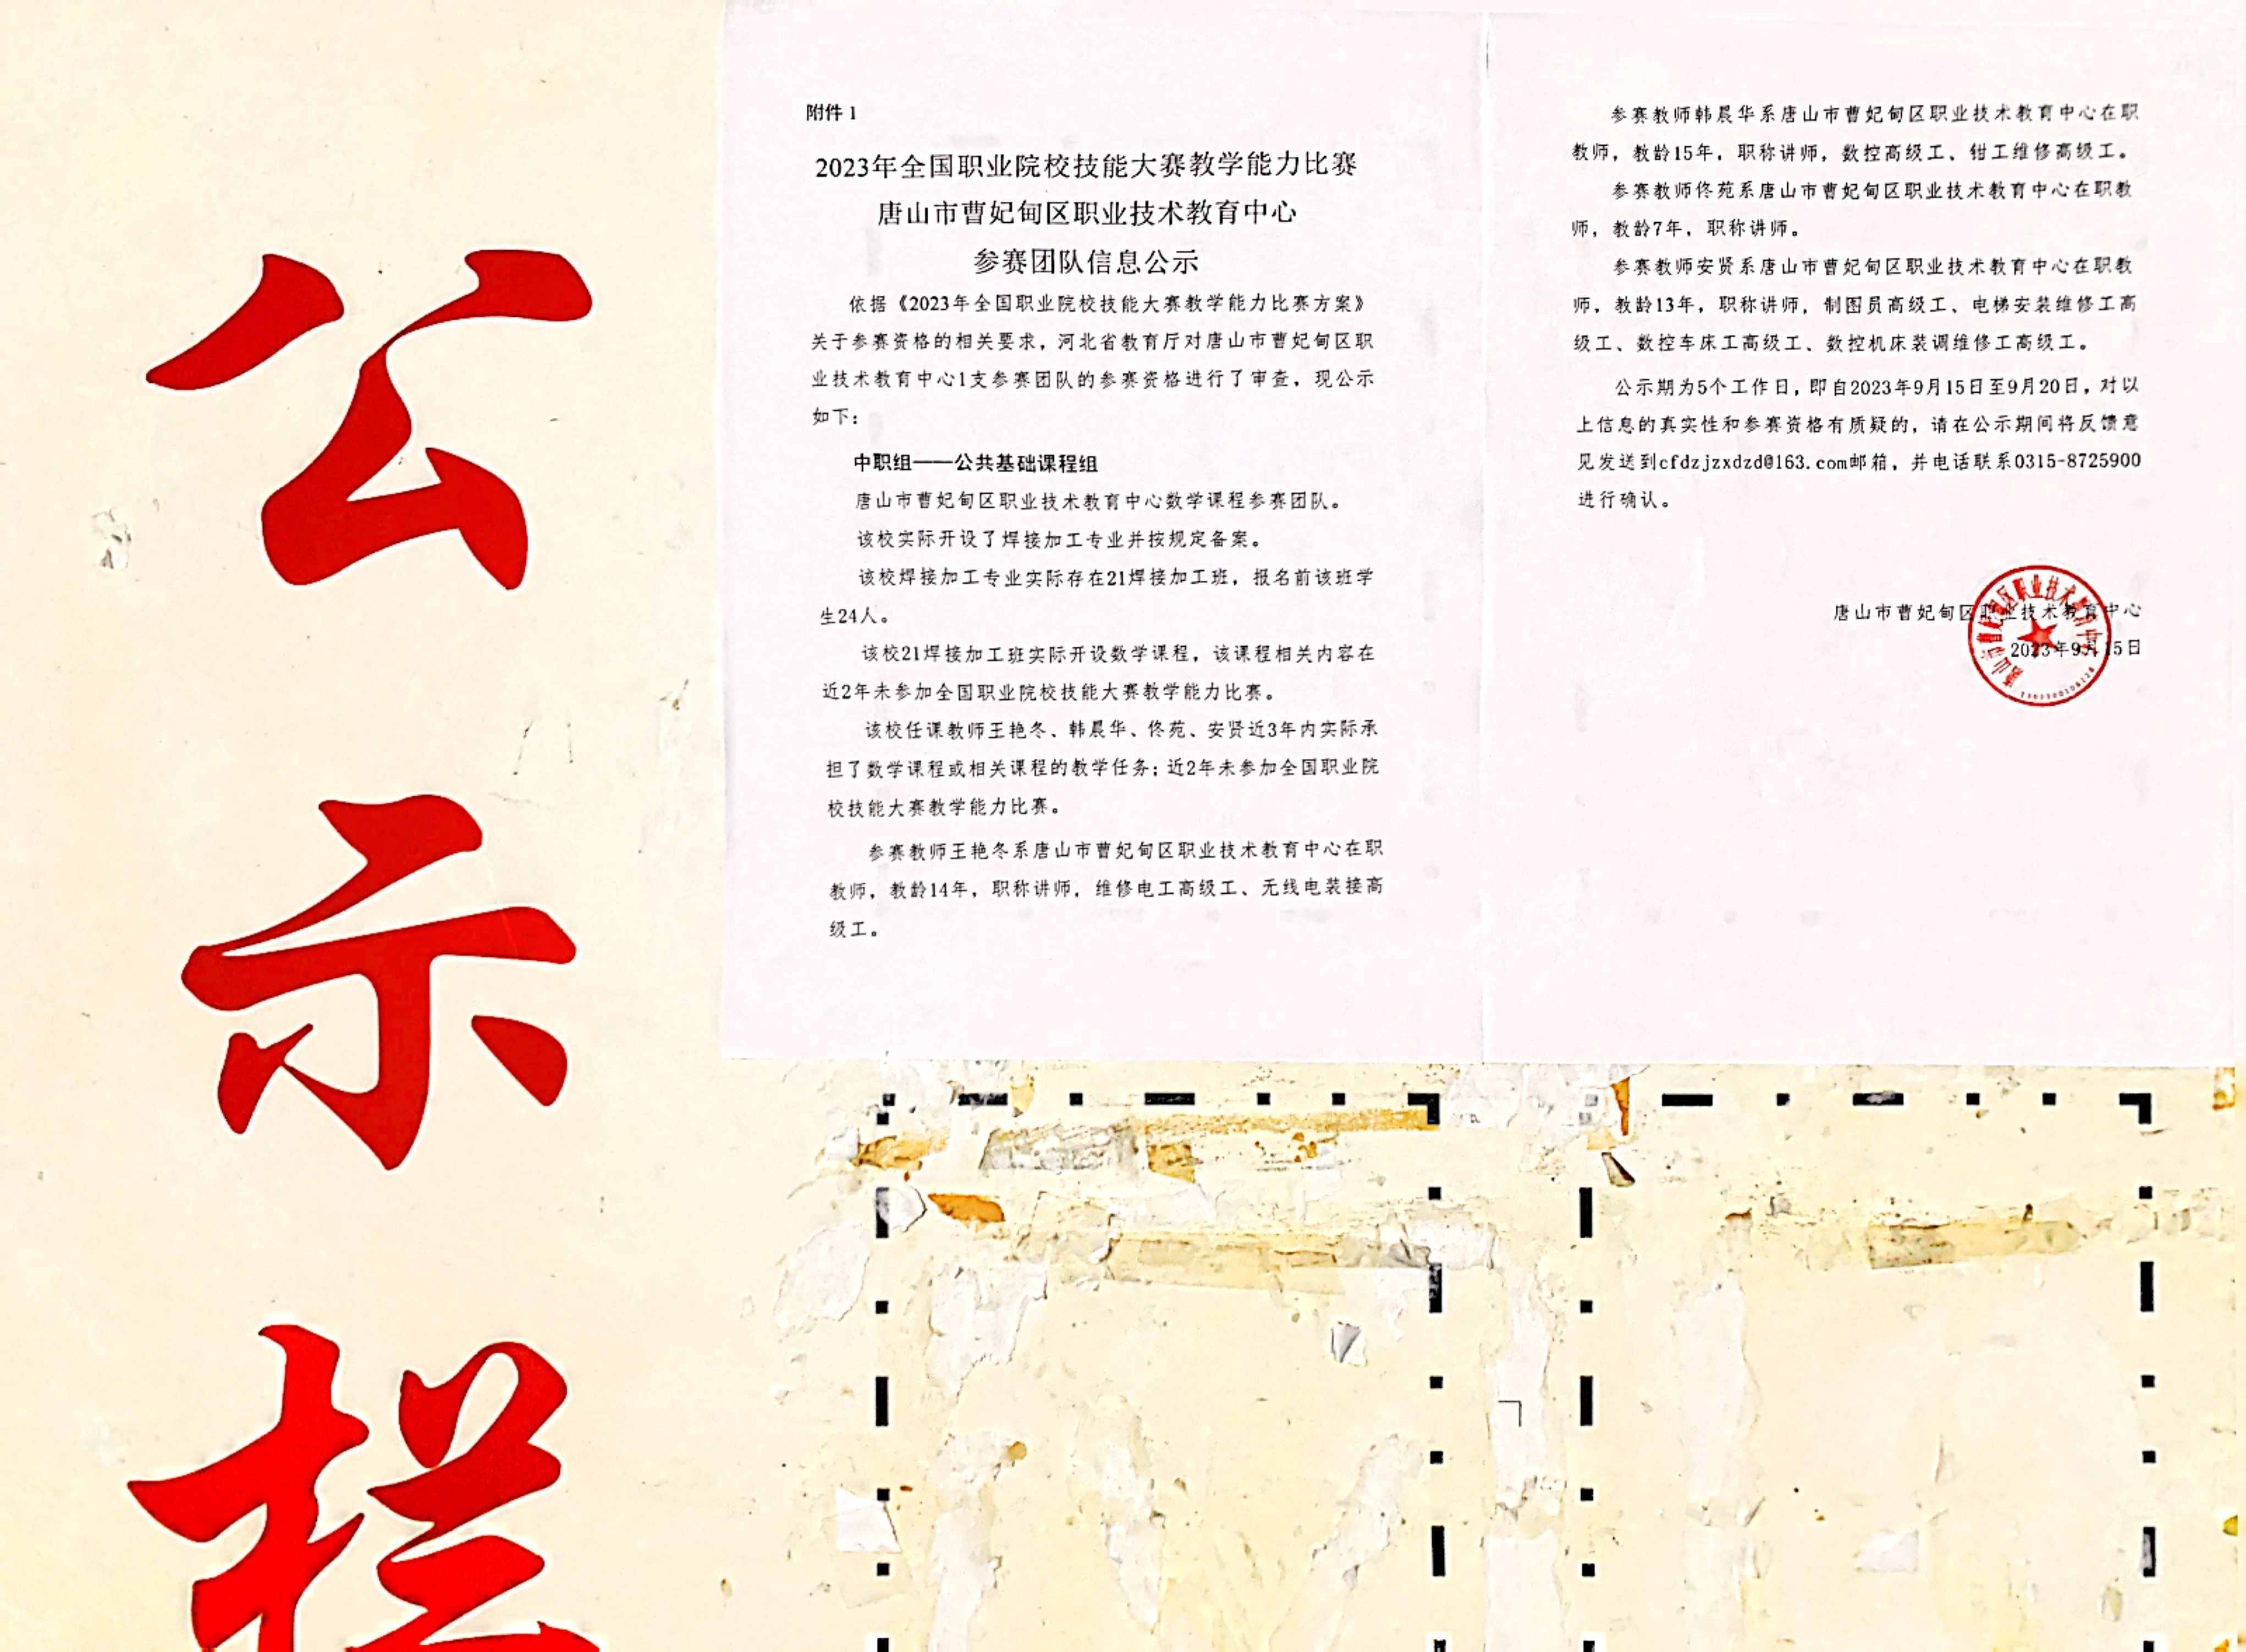 公
示
栏
附件 1
2023年全国职业院校技能大赛教学能力比赛
唐山市曹妃甸区职业技术教育中心
参赛团队信息公示
依据《2023年全国职业院校技能大赛教学能力比赛方案》
关于参赛资格的相关要求，河北省教育厅对唐山市曹妃甸区职
业技术教育中心1支参赛团队的参赛资格进行了审查，现公示
如下：
中职组——公共基础课程组
唐山市曹妃甸区职业技术教育中心数学课程参赛团队。
该校实际开设了焊接加工专业并按规定备案。
该校焊接加工专业实际存在21焊接加工班，报名前该班学
生24人。
该校21焊接加工班实际开设数学课程，该课程相关内容在
近2年未参加全国职业院校技能大赛教学能力比赛。
该校任课教师王艳冬、韩晨华、佟苑、安贤近3年内实际承
担了数学课程或相关课程的教学任务；近2年未参加全国职业院
校技能大赛教学能力比赛。
参赛教师王艳冬系唐山市曹妃甸区职业技术教育中心在职
教师，教龄14年，职称讲师，维修电工高级工、无线电装接高
级工。
参赛教师韩晨华系唐山市曹妃甸区职业技术教育中心在职
教师，教龄15年，职称讲师，数控高级工、钳工维修高级工。
参赛教师佟苑系唐山市曹妃甸区职业技术教育中心在职教
师，教龄7年，职称讲师。
参赛教师安贤系唐山市曹妃甸区职业技术教育中心在职教
师，教龄13年，职称讲师，制图员高级工、电梯安装维修工高
级工、数控车床工高级工、数控机床装调维修工高级工。
公示期为5个工作日，即自2023年9月15日至9月20日，对以
上信息的真实性和参赛资格有质疑的，请在公示期间将反馈意
见发送到cfdzjzxdzd@163.com邮箱，并电话联系0315-8725900
进行确认。
唐山市曹妃甸区职业技术教育中心
2023年9月15日